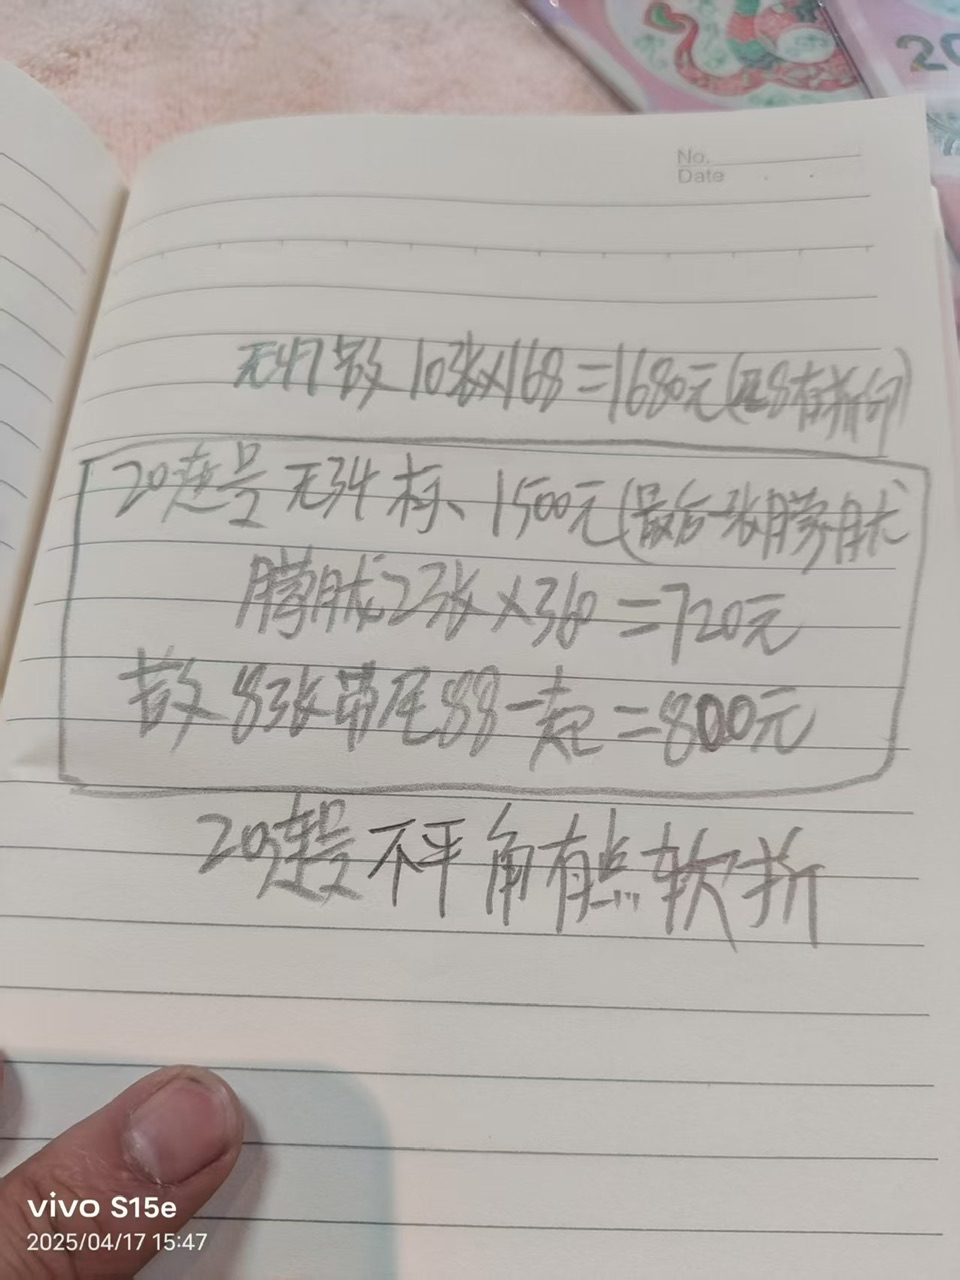 20
No.
Date
无47散 10张×168=1680元(尾8有折印)
20连号 无34标、1500元(最后一张朦胧
朦胧2张×360=720元
散8张带尾88一起=800元
20连号不平 角有点软折
vivo S15e
2025/04/17 15:47